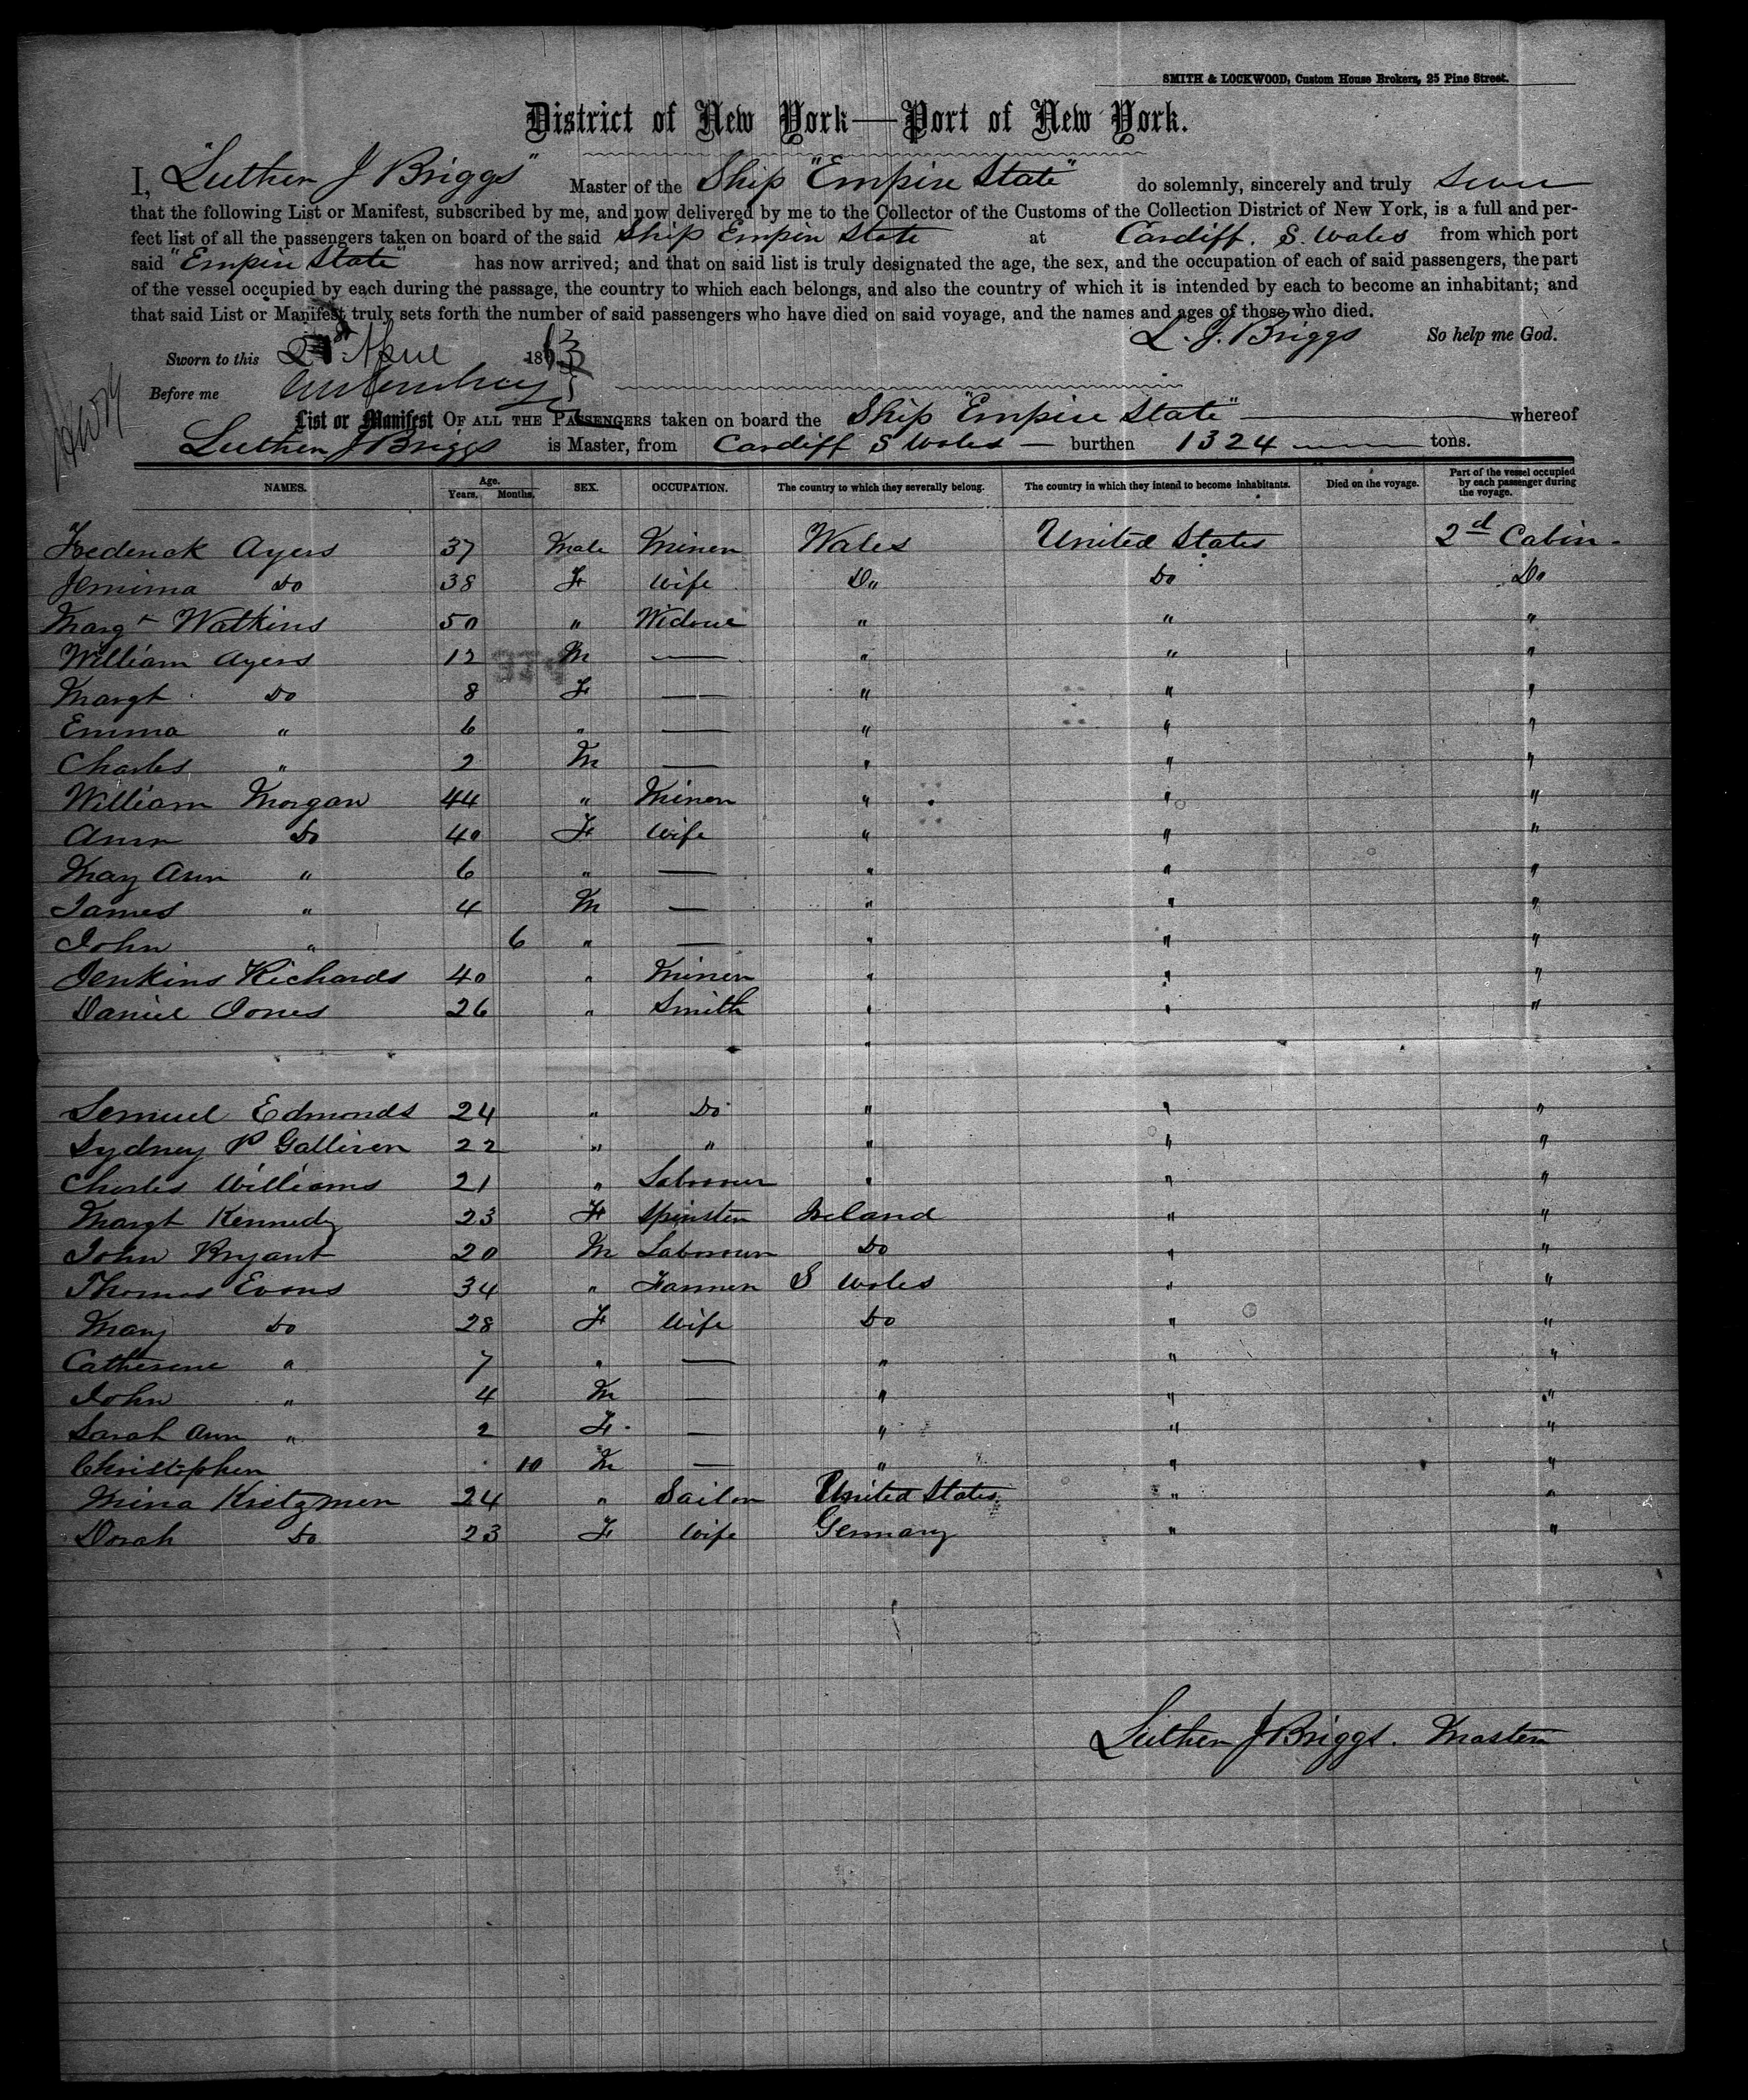 SMITH & LOCKWOOD, Custom House Brokers, 25 Pine Street.
District of New York—Port of New York.
I, "Luther J Briggs" Master of the Ship "Empire State" do solemnly, sincerely and truly swear
that the following List or Manifest, subscribed by me, and now delivered by me to the Collector of the Customs of the Collection District of New York, is a full and per-
fect list of all the passengers taken on board of the said Ship Empire State at Cardiff. S. Wales from which port
said "Empire State" has now arrived; and that on said list is truly designated the age, the sex, and the occupation of each of said passengers, the part
of the vessel occupied by each during the passage, the country to which each belongs, and also the country of which it is intended by each to become an inhabitant; and
that said List or Manifest truly sets forth the number of said passengers who have died on said voyage, and the names and ages of those who died.
L. J. Briggs So help me God.
Sworn to this April 1863
Before me
List or Manifest OF ALL THE PASSENGERS taken on board the Ship "Empire State" whereof
Luther J Briggs is Master, from Cardiff S Wales — burthen 1324 — tons.
NAMES. Age. Years. Months. SEX. OCCUPATION. The country to which they severally belong. The country in which they intend to become inhabitants. Died on the voyage. Part of the vessel occupied by each passenger during the voyage.
Frederick Ayers 37 Male Miner Wales United States 2d Cabin -
Jemima Do 38 F Wife Do Do Do
Margt Watkins 50 " Widow " " "
William Ayers 12 M — " " "
Margt Do 8 F — " " "
Emma " 6 " — " " "
Charles " 2 M — " " "
William Morgan 44 " Miner " " "
Ann Do 40 F Wife " " "
Mary Ann " 6 " — " " "
James " 4 M — " " "
John " 6 " — " " "
Jenkins Richards 40 " Miner " " "
Daniel Jones 26 " Smith " " "
"
Semuel Edmonds 24 " Do " " "
Sydney P Galliven 22 " " " " "
Charles Williams 21 " Labourer " " "
Margt Kennedy 23 F Spinster Ireland " "
John Bryant 20 M Labourer Do " "
Thomas Evans 34 " Farmer S Wales " "
Mary Do 28 F Wife Do " "
Catherine " 7 " — " " "
John " 4 M — " " "
Sarah Ann " 2 F — " " "
Christopher 10 M — " " "
Mina Kietzmen 24 " Sailor United States " "
Dorah Do 23 F Wife Germany " "
Luther J Briggs. Master